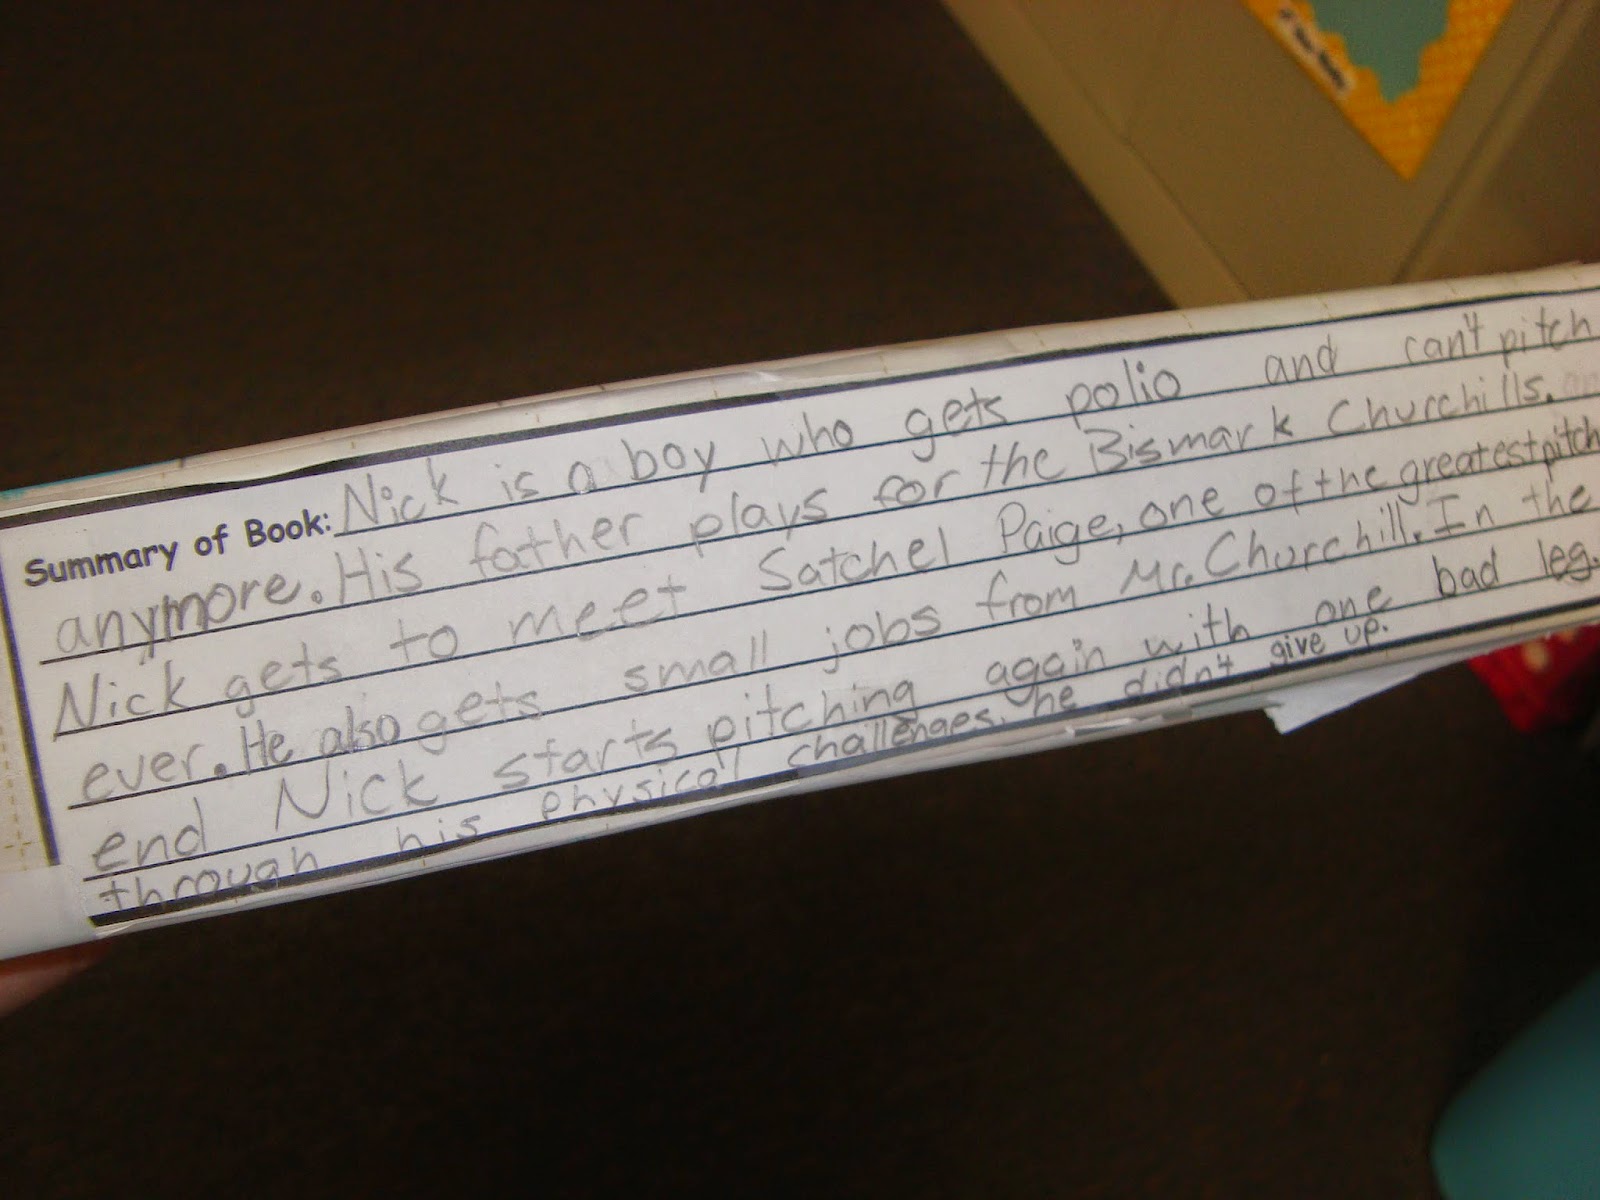 Summary of Book: Nick is a boy who gets polio and can't pitch
anymore. His father plays for the Bismark Churchills.
Nick gets to meet Satchel Paige, one of the greatest pitch
ever. He also gets small jobs from Mr. Churchill. In the
end Nick starts pitching again with one bad leg.
through his physical challenges, he didn't give up.